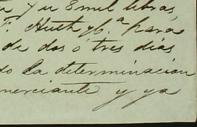 y su Email libras,
Huth y C.ª para
de dos ó tres dias
do la determinacion
merciante y ya